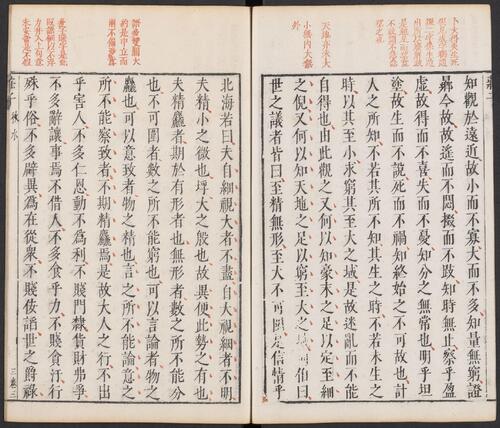 知觀於遠近故小而不寡大而不多知量無窮證
曏今故故遙而不悶掇而不跂知時無止察乎盈
虛故得而不喜失而不憂知分之無常也明乎坦
塗故生而不說死而不禍知終始之不可故也計
人之所知不若其所不知其生之時不若未生之
時以其至小求窮其至大之域是故迷亂而不能
自得也由此觀之又何以知豪末之足以定至細
之倪又何以知天地之足以窮至大之域河伯曰
世之議者皆曰至精無形至大不可圍是信情乎
天地亦失大
小總內大總
外
北海若曰夫自細視大者不盡自大視細者不明
夫精小之微也垺大之殷也故異便此勢之有也
夫精麤者期於有形者也無形者數之所不能分
也不可圍者數之所不能窮也可以言論者物之
麤也可以意致者物之精也言之所不能論意之
所不能察致者不期精麤焉是故大人之行不出
乎害人不多仁恩動不為利不賤門隸貨財弗爭
不多辭讓事焉不借人不多食乎力不賤貪汙行
殊乎俗不多辟異為在從眾不賤佞諂世之爵祿
莊子 秋水
三卷三